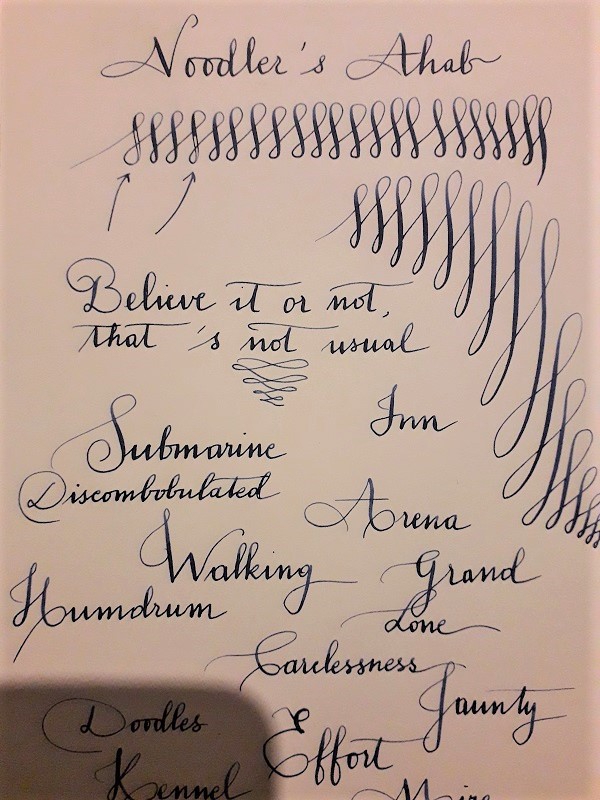 Noodler's Ahab
Believe it or not,
that's not usual
Inn
Submarine
Discombobulated
Arena
Walking
Grand
Humdrum
Lone
Carelessness
Jaunty
Doodles
Effort
Kennel